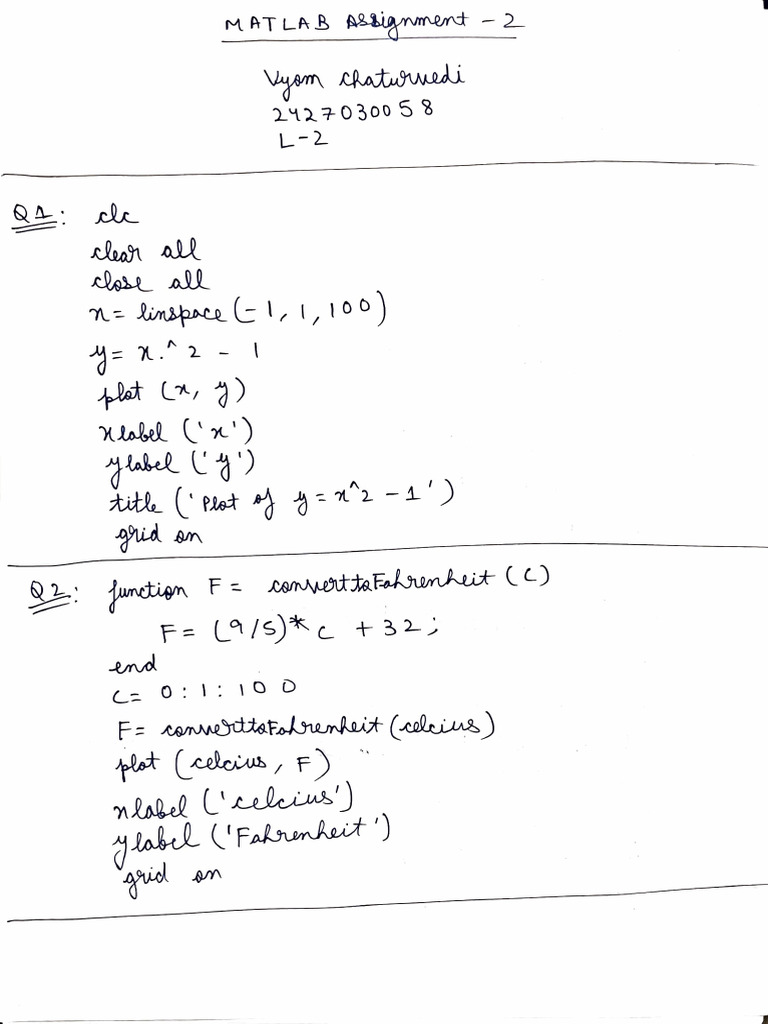 MATLAB Assignment - 2
Vyom Chaturvedi
2427030058
L-2
Q1: clc
clear all
close all
x = linspace(-1, 1, 100)
y = x.^2 - 1
plot (x, y)
xlabel ('x')
ylabel ('y')
title ('Plot of y = x^2 - 1')
grid on
Q2: function F = converttoFahrenheit (C)
F = (9/5)* C + 32;
end
C = 0:1:100
F = converttoFahrenheit (celcius)
plot (celcius, F)
xlabel ('celcius')
ylabel ('Fahrenheit')
grid on